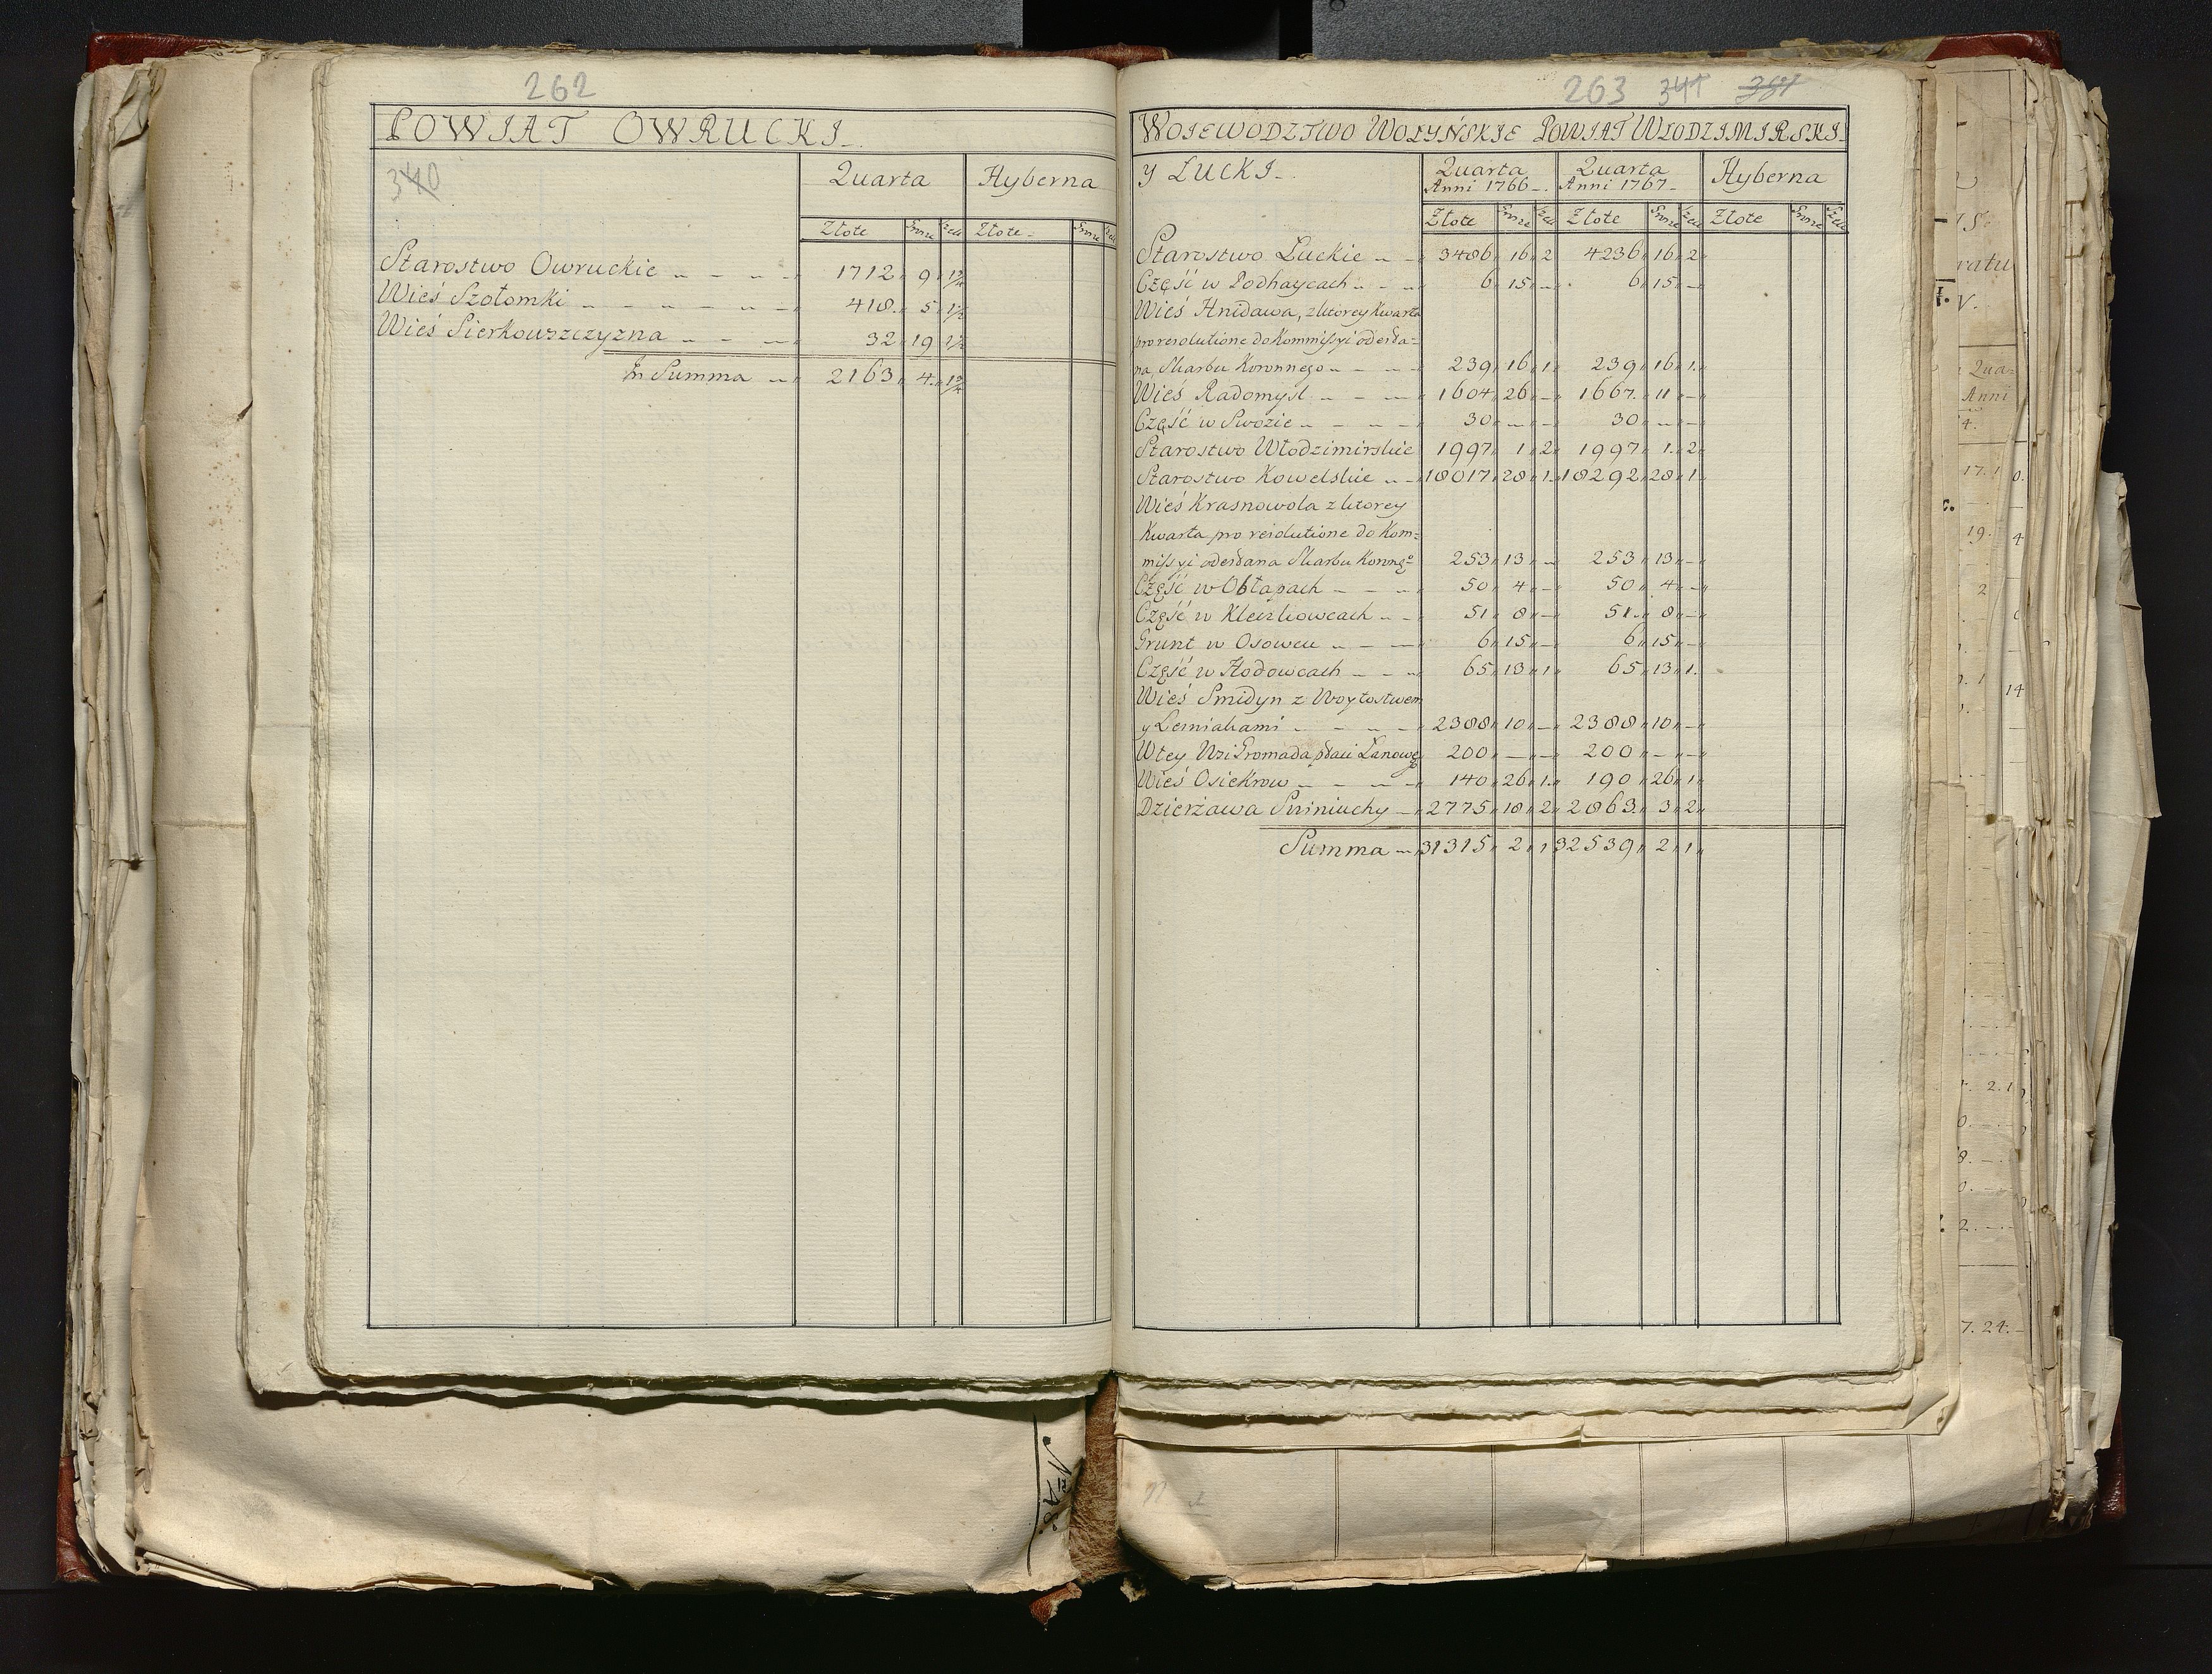 262
POWIAT OWRUCKI
340
Quarta Hyberna
Złote Grosze Szel. Złote Grosze Szel.
Starostwo Owruckie 1712 9 1¾
Wieś Szołomki 418 5 1½
Wieś Sierkowszczyzna 32 19 1½
In Summa 2163 4 1¾
263 341 381
WOIEWODZTWO WOŁYŃSKIE POWIAT WŁODZIMIRSKI
y ŁUCKI Quarta Anni 1766 Quarta Anni 1767 Hyberna
Złote Grosze Szel. Złote Grosze Szel. Złote Grosze Szel.
Starostwo Łuckie 3486 16 2 4236 16 2
Część w Podhaycach 6 15 – 6 15 –
Wieś Hnidawa, z ktorey Kwarta
pro resolutione do Kommissyi odesła=
na, Skarbu Koronnego 239 16 1 239 16 1
Wieś Radomysl 1604 26 – 1667 11 –
Część w Swozie 30 – – 30 – –
Starostwo Włodzimirskie 1997 1 2 1997 1 2
Starostwo Kowelskie 18017 28 1 18292 28 1
Wieś Krasnowola z ktorey
Kwarta pro resolutione do Kom=
missyi odesłana Skarbu Koronngo 253 13 – 253 13 –
Część w Obłapach 50 4 – 50 4 –
Część w Kleczkowcach 51 8 – 51 8 –
Grunt w Osowcu 6 15 – 6 15 –
Część w Hodowcach 65 13 1 65 13 1
Wieś Smidyn z Woytostwem
y Lesniakami 2388 10 – 2388 10 –
W tey Wsi Gromada płaci Łanowego 200 – – 200 – –
Wieś Osiekrow 140 26 1 190 26 1
Dzierżawa Swiniuchy 2775 18 2 2863 3 2
Summa 31315 2 1 32539 2 1
ratu
V.
Qua=
Anni
17. 1
19.
7. 24.